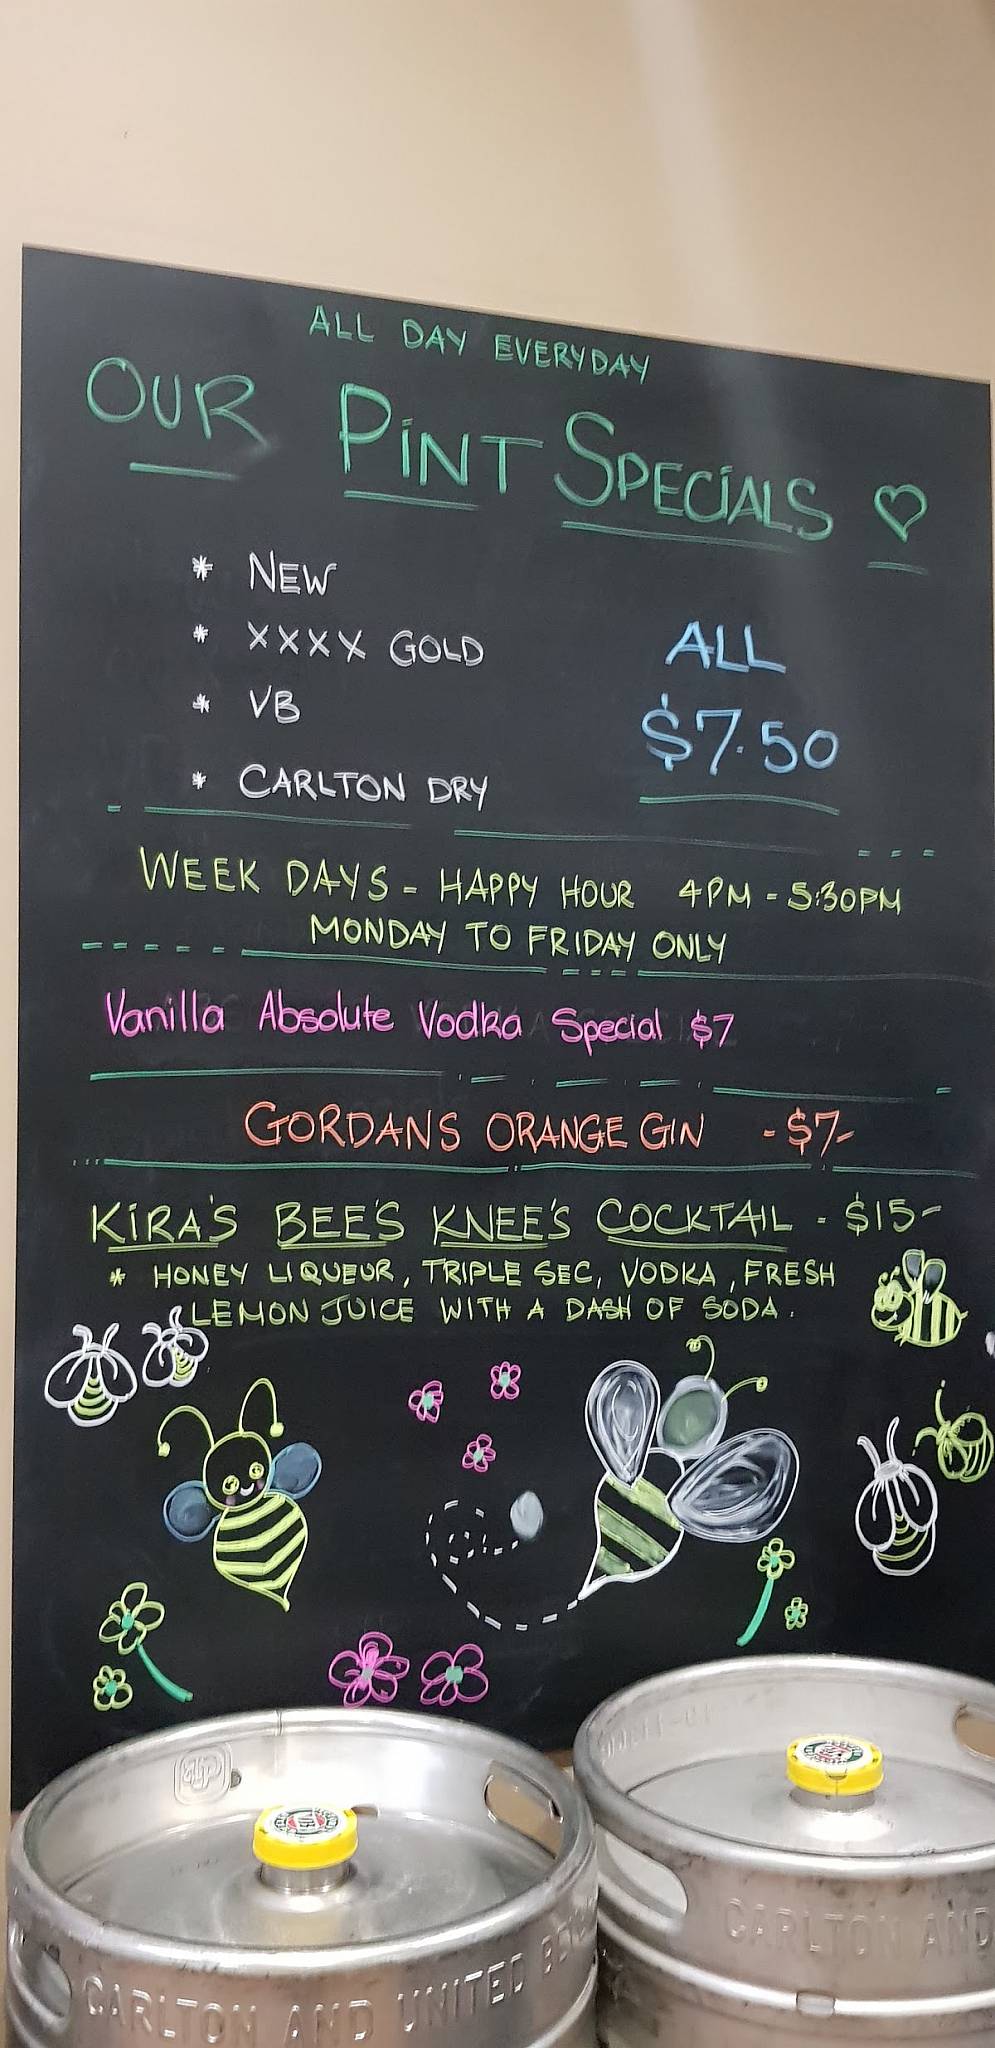 ALL DAY EVERYDAY
OUR PINT SPECIALS ♡
* NEW
* XXXX GOLD
* VB
* CARLTON DRY
ALL
$7.50
WEEK DAYS - HAPPY HOUR 4PM - 5:30PM
MONDAY TO FRIDAY ONLY
Vanilla Absolute Vodka Special $7
GORDANS ORANGE GIN - $7-
KIRA'S BEE'S KNEE'S COCKTAIL - $15-
* HONEY LIQUEUR, TRIPLE SEC, VODKA, FRESH
LEMON JUICE WITH A DASH OF SODA.
CARLTON AND UNITED
CARLTON AND